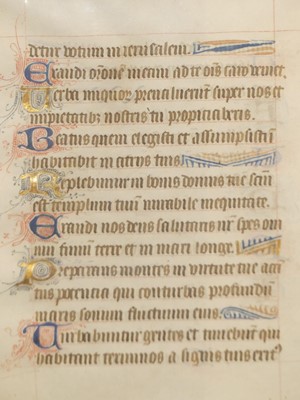 detur votum in ierusalem.
Exaudi orōnē meam ad te oīs caro veniet.
Verba iniquoꝝ prevaluerunt super nos et
impietatibus nostris tu propiciaberis.
Beatus quem elegisti et assumpsisti in
habitabit in atriis tuis
Replebimur in bonis domus tue scm̄
est templum tuum mirabile in equitate.
Exaudi nos deus salutaris nr̄ spes om
nium finium terre et in mari longe.
Preparans montes in virtute tua acci
tus potencia qui conturbas profundū
maris sonum fluctuum eius.
Turbabuntur gentes et timebunt qui
habitant terminos a signis tuis